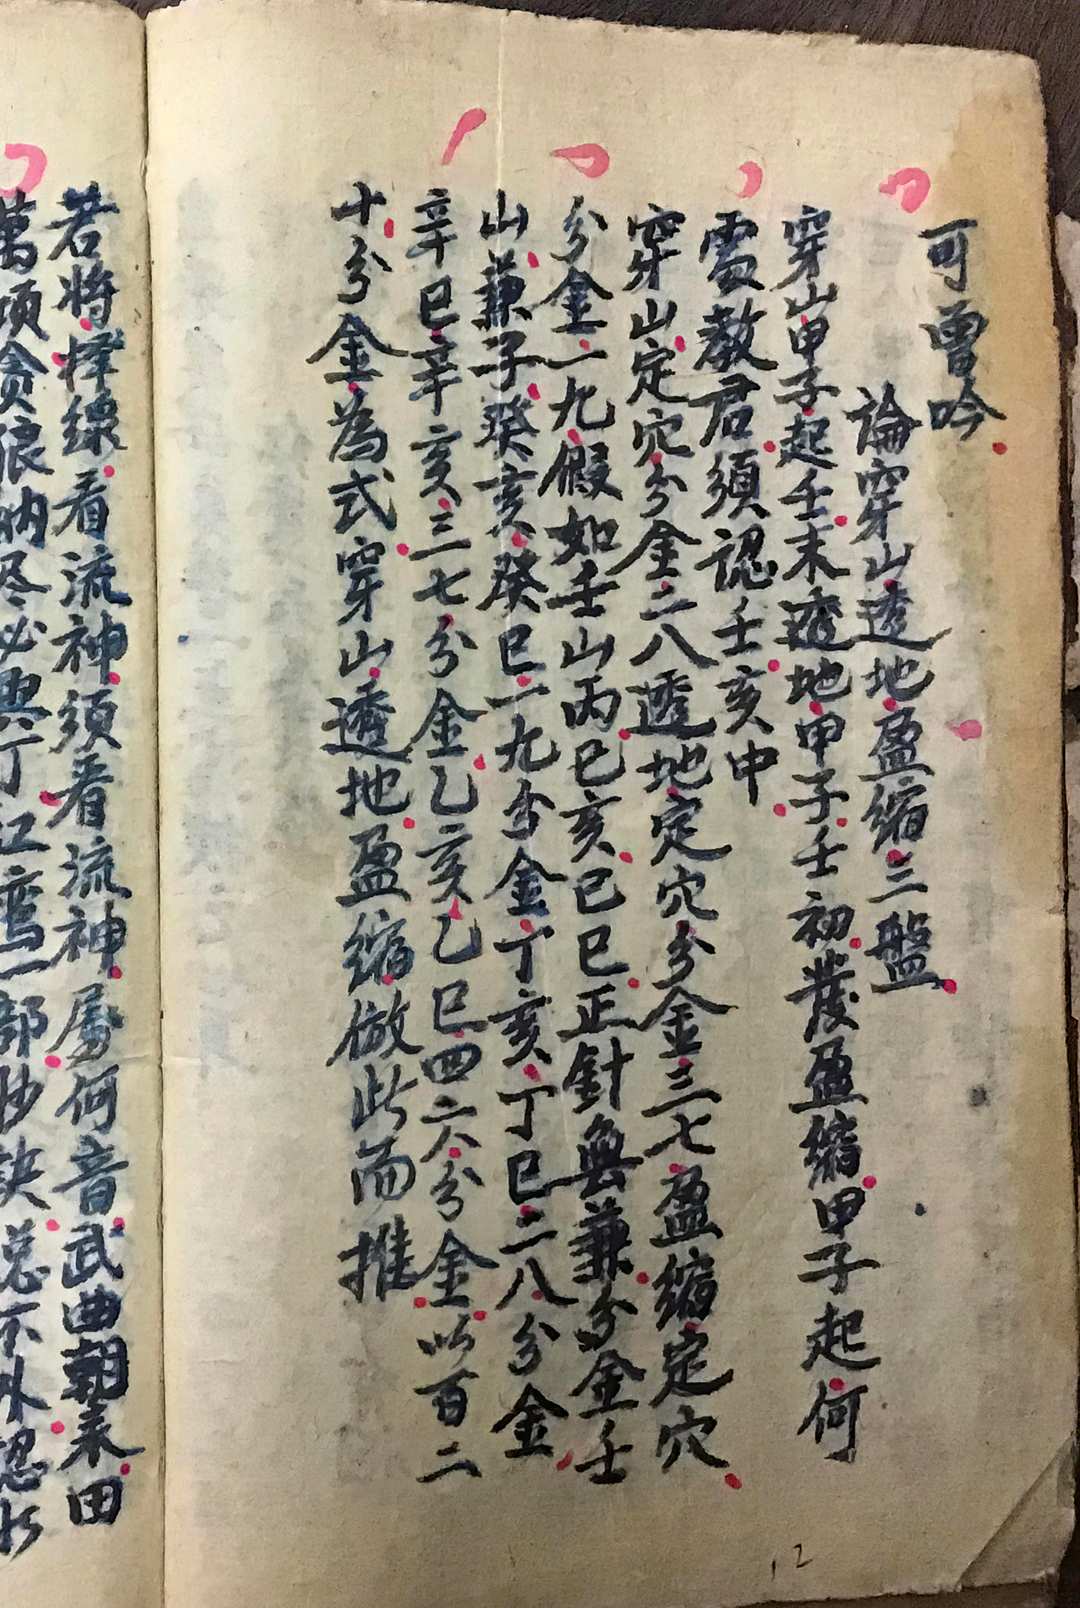 可曾吟
論穿山透地盈縮三盤
穿山甲子起壬末透地甲子壬初發盈縮甲子起何
處教君須認壬亥中
穿山定穴分金二八透地定穴分金三七盈縮定穴
分金一九假如壬山丙巳亥巳巳正針無兼分金壬
山兼子癸亥癸巳一九分金丁亥丁巳二八分金
辛巳辛亥三七分金乙亥乙巳四六分金以百二
十分金為式穿山透地盈縮倣此而推
若將繹線看流神須看流神屬何音武曲朝來田
萬頃貪狼納尽必興丁江鸾一部抄訣总不外認水
12